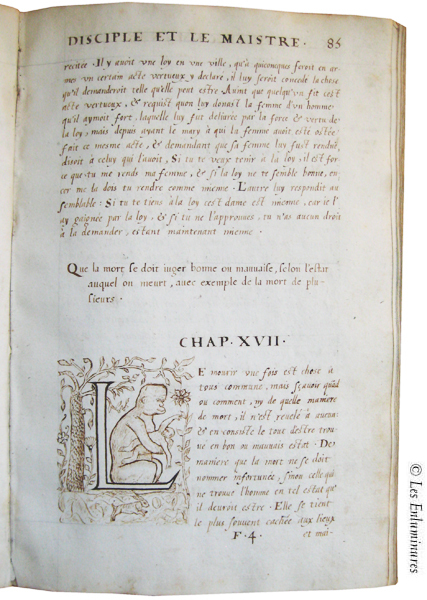 DISCIPLE ET LE MAISTRE. 85
recitée. Il y avoit une loy en une ville, qu'à quiconques feroit en ar-
mes un certain acte vertueux y declaré, il luy seroit concedé la chose
qu'il demanderoit telle qu'elle peut estre. Avint que quelqu'un fit cest
acte vertueux, & requist qu'on luy donast la femme d'un homme
qu'il aymoit fort, laquelle luy fut delivrée par la force & vertu de
la loy, mais depuis ayant le mary à qui la femme avoit esté ostée
fait ce mesme acte, & demandant que sa femme luy fust rendue
disoit à celuy qui l'avoit, Si tu te veux tenir à la loy, il est for-
ce que tu me rends ma femme, & si la loy ne te semble bonne, en-
cor me la dois tu rendre comme mienne. L'autre luy respondit au
semblable: Si tu te tiens à la loy cest dame est mienne, car ie l'
ay gaignée par la loy, & si tu ne l'approuves, tu n'as aucun droit
à la demander, estant maintenant mienne.
Que la mort se doit iuger bonne ou mauvaise, selon l'estat
auquel on meurt, avec exemple de la mort de plu-
sieurs.
CHAP. XVII.
LE mourir une fois est chose à
tous commune, mais sçavoir quãd
ou comment, ny de quelle maniere
de mort, il n'est revelé à aucun
& en consiste le tout d'estre trou-
vé en bon ou mauvais estat. De
maniere que la mort ne se doit
nommer infortunée, sinon celle qui
ne trouve l'homme en tel estat qu'
il devroit estre. Elle se tient
le plus souvent cachée aux lieux
F. 4. et mai-
© Les Enluminures